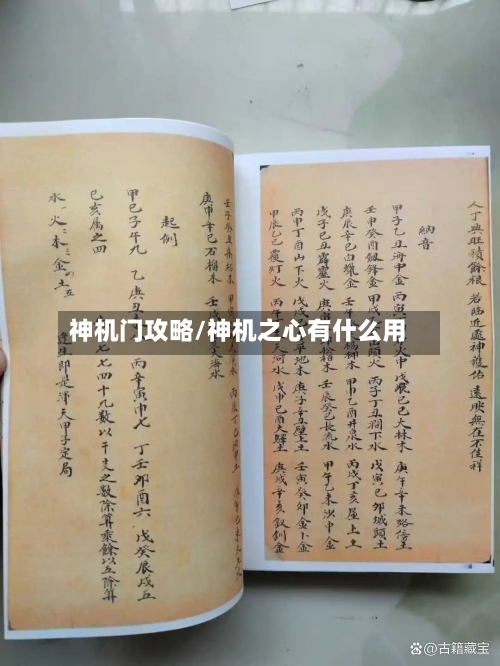 神机门攻略/神机之心有什么用
人丁興旺積餘粮 若臨近處神護佑 遠映無在不佳祥
納音
甲子乙丑海中金 丙寅 戊辰己巳大林木 庚午辛未路傍土
壬申癸酉劔鋒金 甲戌 頭火 丙子丁丑澗下水 戊寅己卯城頭土
庚辰辛巳白蠟金 壬午 木 甲申乙酉井泉水 丙戌丁亥屋上土
戊子己丑霹靂火 庚寅 木 壬辰癸巳長流水 甲午乙未沙中金
丙申丁酉山下火 戊戌 平地木 庚子辛丑壁上土 壬寅癸卯金卜金
甲辰乙巳覆灯火 丙午 天河水 戊申己酉大驛土 庚戌辛亥釵釧金
壬子癸丑桑柘木 甲寅
庚申辛酉石榴木 壬戌 大海水
起例
甲己子午九 乙庚丑 丙辛寅申七 丁壬卯酉六 戊癸辰戌五
巳亥属之四 七七四十九数以干支之数除算乘餘以五除算
水一火二木三金四土五 逢生即是渾天甲子定局
头条 @古籍藏宝